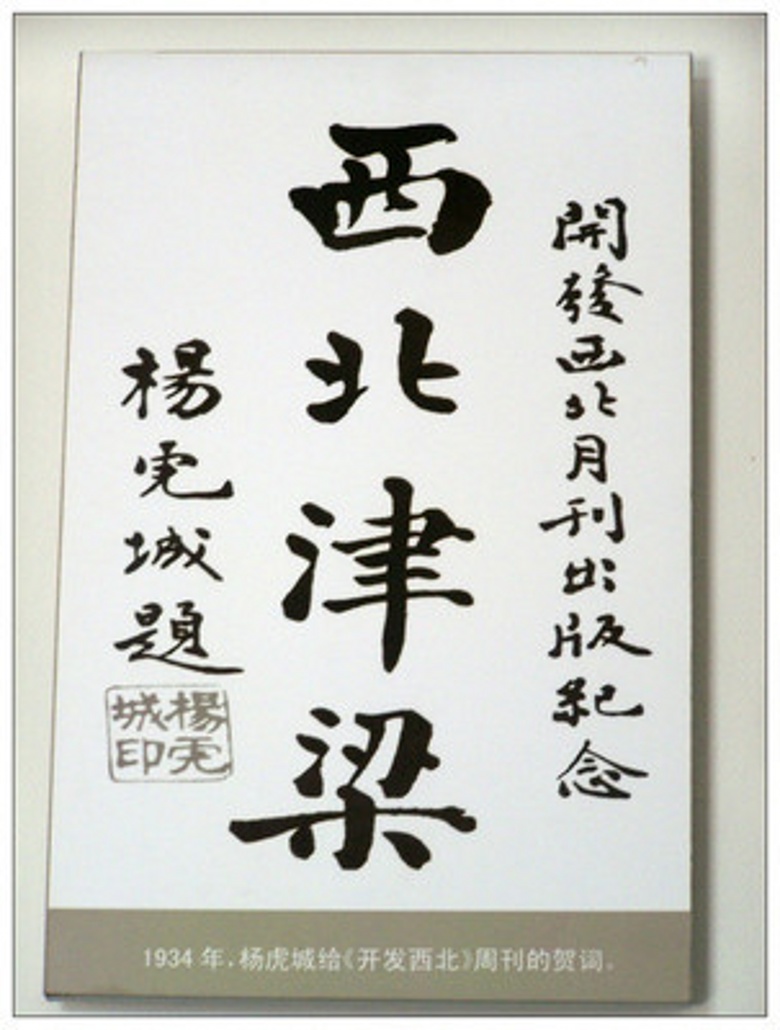 開發西北月刊出版紀念
西北津梁
楊虎城題
楊虎
城印
1934年，杨虎城给《开发西北》周刊的贺词。